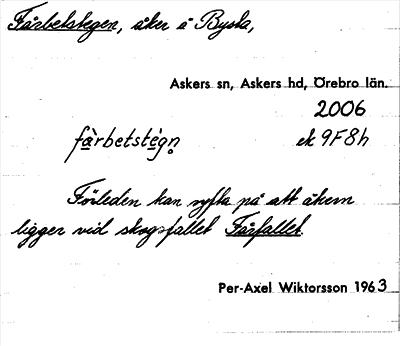 Fårbetstegen, åker i Bysta,
Askers sn, Askers hd, Örebro län.
2006
fårbetstégn̥ ek 9F8h
Förleden kan syfta på att åkern
ligger vid skogsfallet Fårfallet.
Per-Axel Wiktorsson 1963